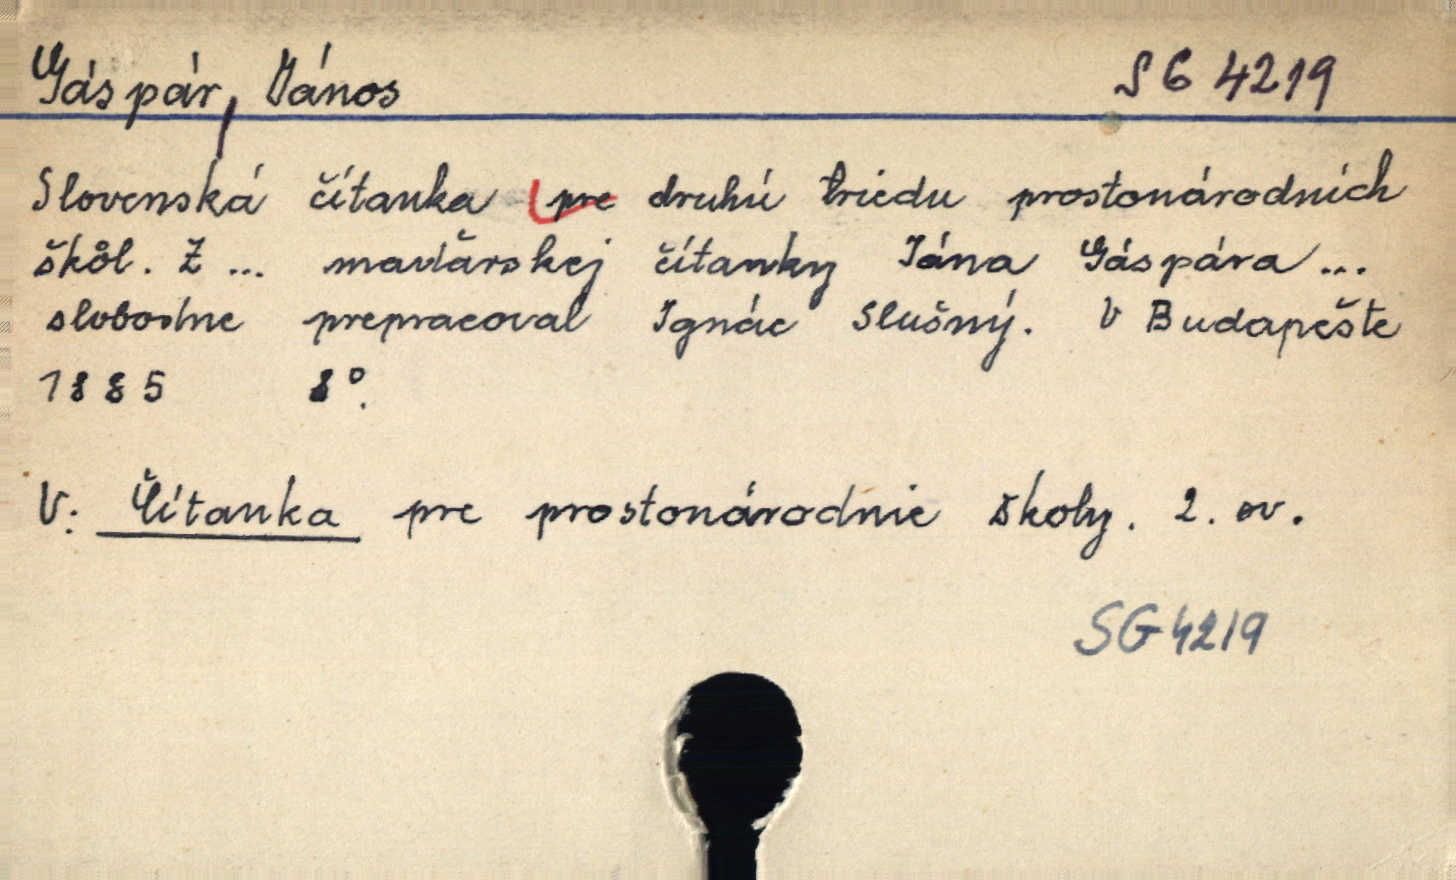 Gáspár, János SG 4219
Slovenská čítanka pre druhú triedu prostonárodních
škôl. Z ... maďarskej čítanky Jána Gáspára ...
slobodne prepracoval Ignác Slušný. V Budapešte
1885 8°.
V: Čítanka pre prostonárodnie školy. 2. ov.
SG 4219